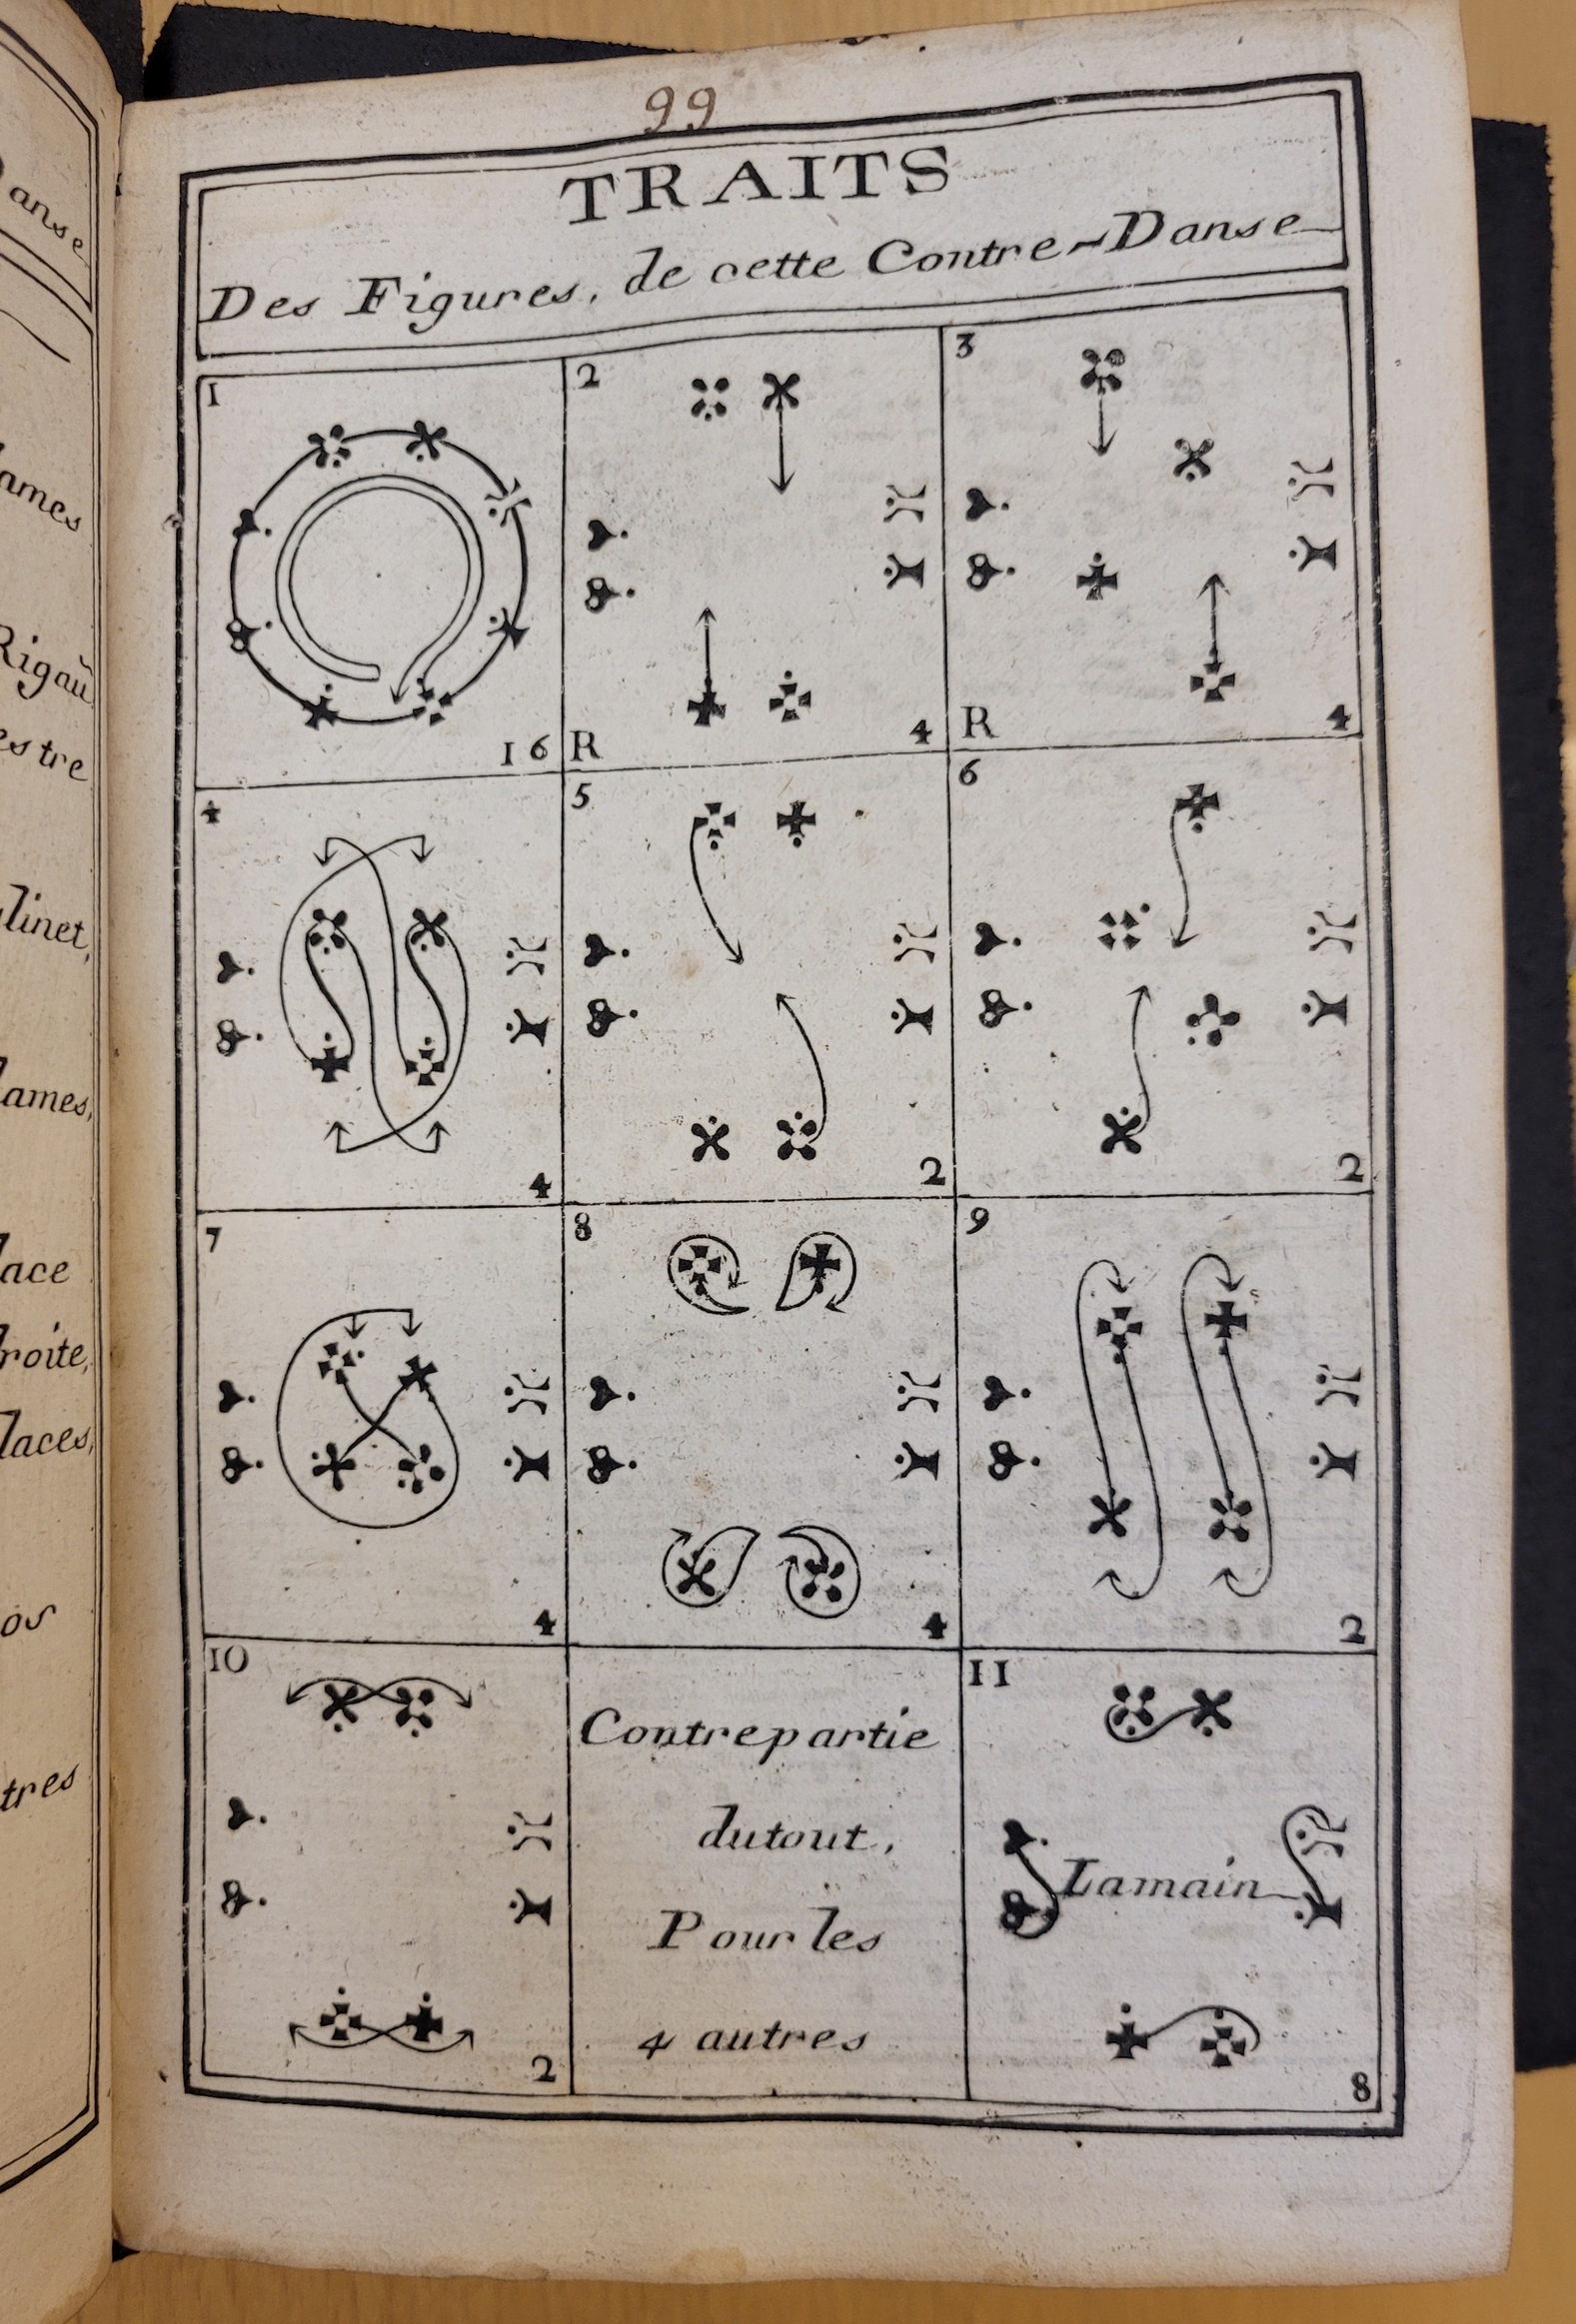 99
TRAITS
Des Figures, de cette Contre-Danse
1
16
2
R
4
3
R
4
4
4
5
2
6
2
7
4
8
4
9
2
10
2
Contrepartie
dutout,
Pour les
4 autres
11
Lamain
8
anse
ames
Rigaù
estre
linet,
ames,
lace
droite,
laces,
os
tres